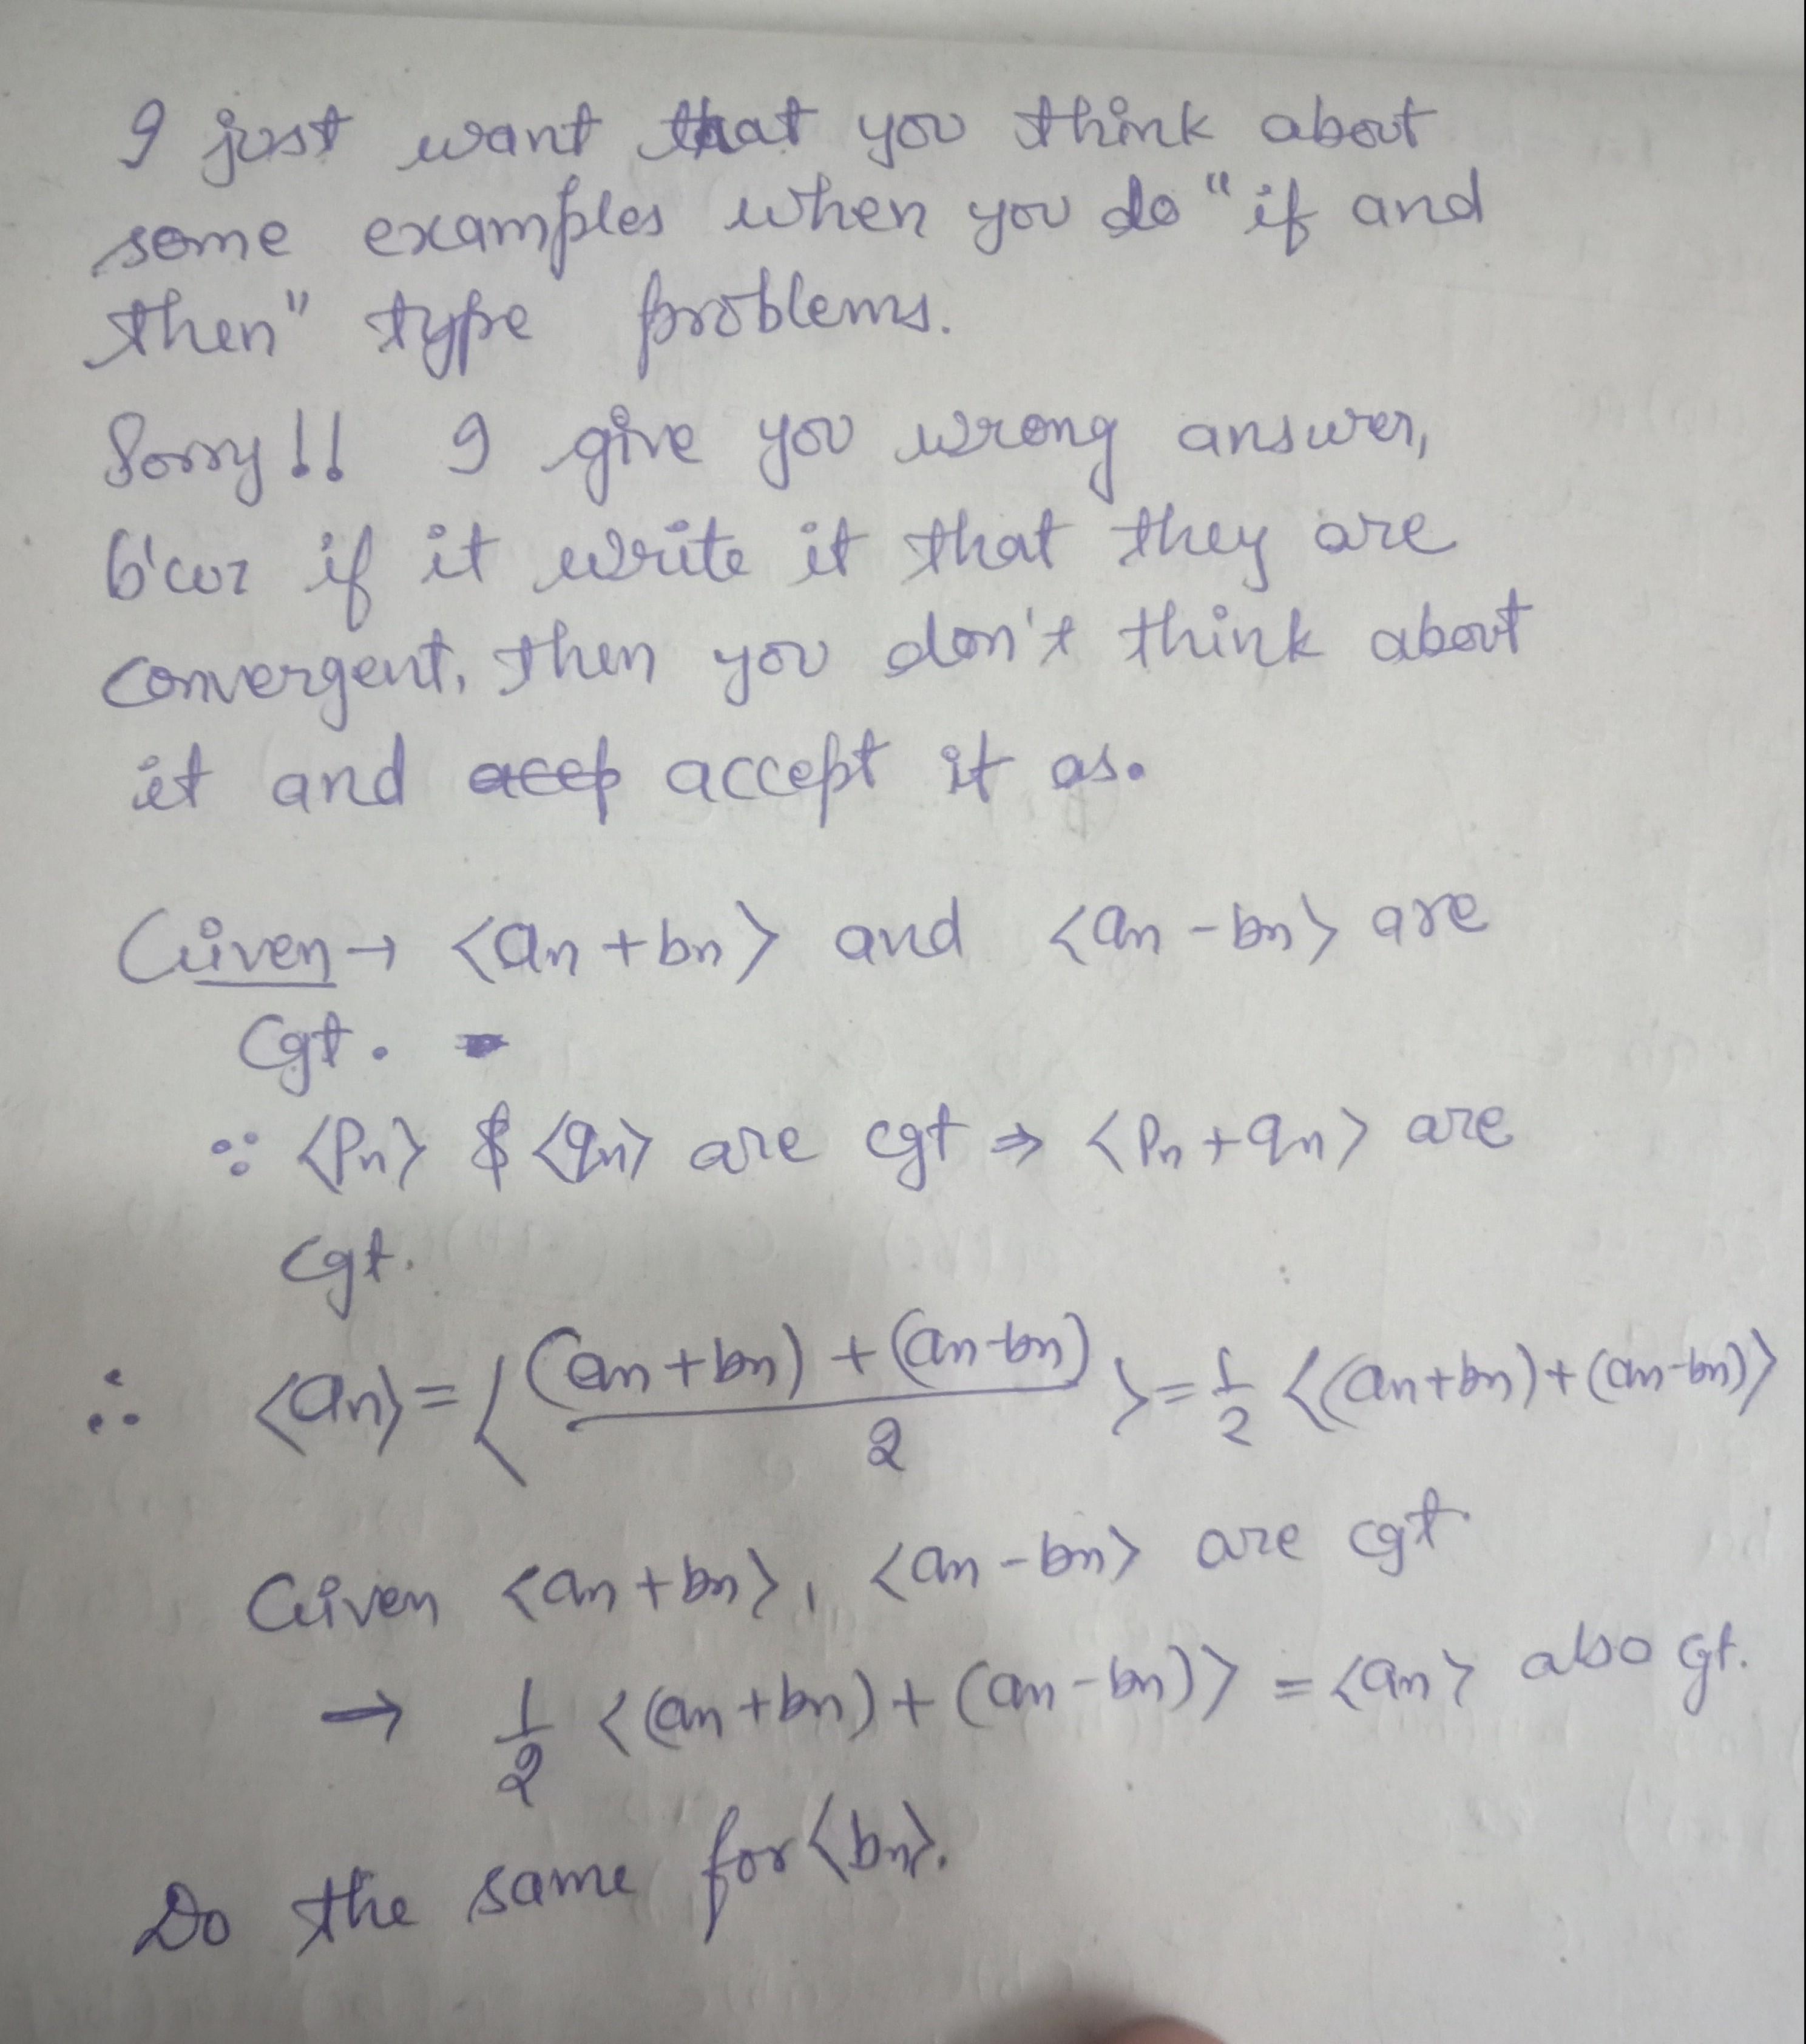 I just want that you think about
some examples when you do "if and
then" type problems.
Sorry!! I give you wrong answer,
b'coz if it write it that they are
convergent, then you don't think about
it and accept it as.
Given → <an + bn> and <an - bn> are
Cgt.
∵ <Pn> & <qn> are cgt ⇒ <Pn + qn> are
cgt.
∴ <an> = <(an + bn) + (an - bn) / 2> = 1/2 <(an + bn) + (an - bn)>
Given <an + bn>, <an - bn> are cgt
→ 1/2 <(an + bn) + (an - bn)> = <an> also cgt.
Do the same for <bn>.